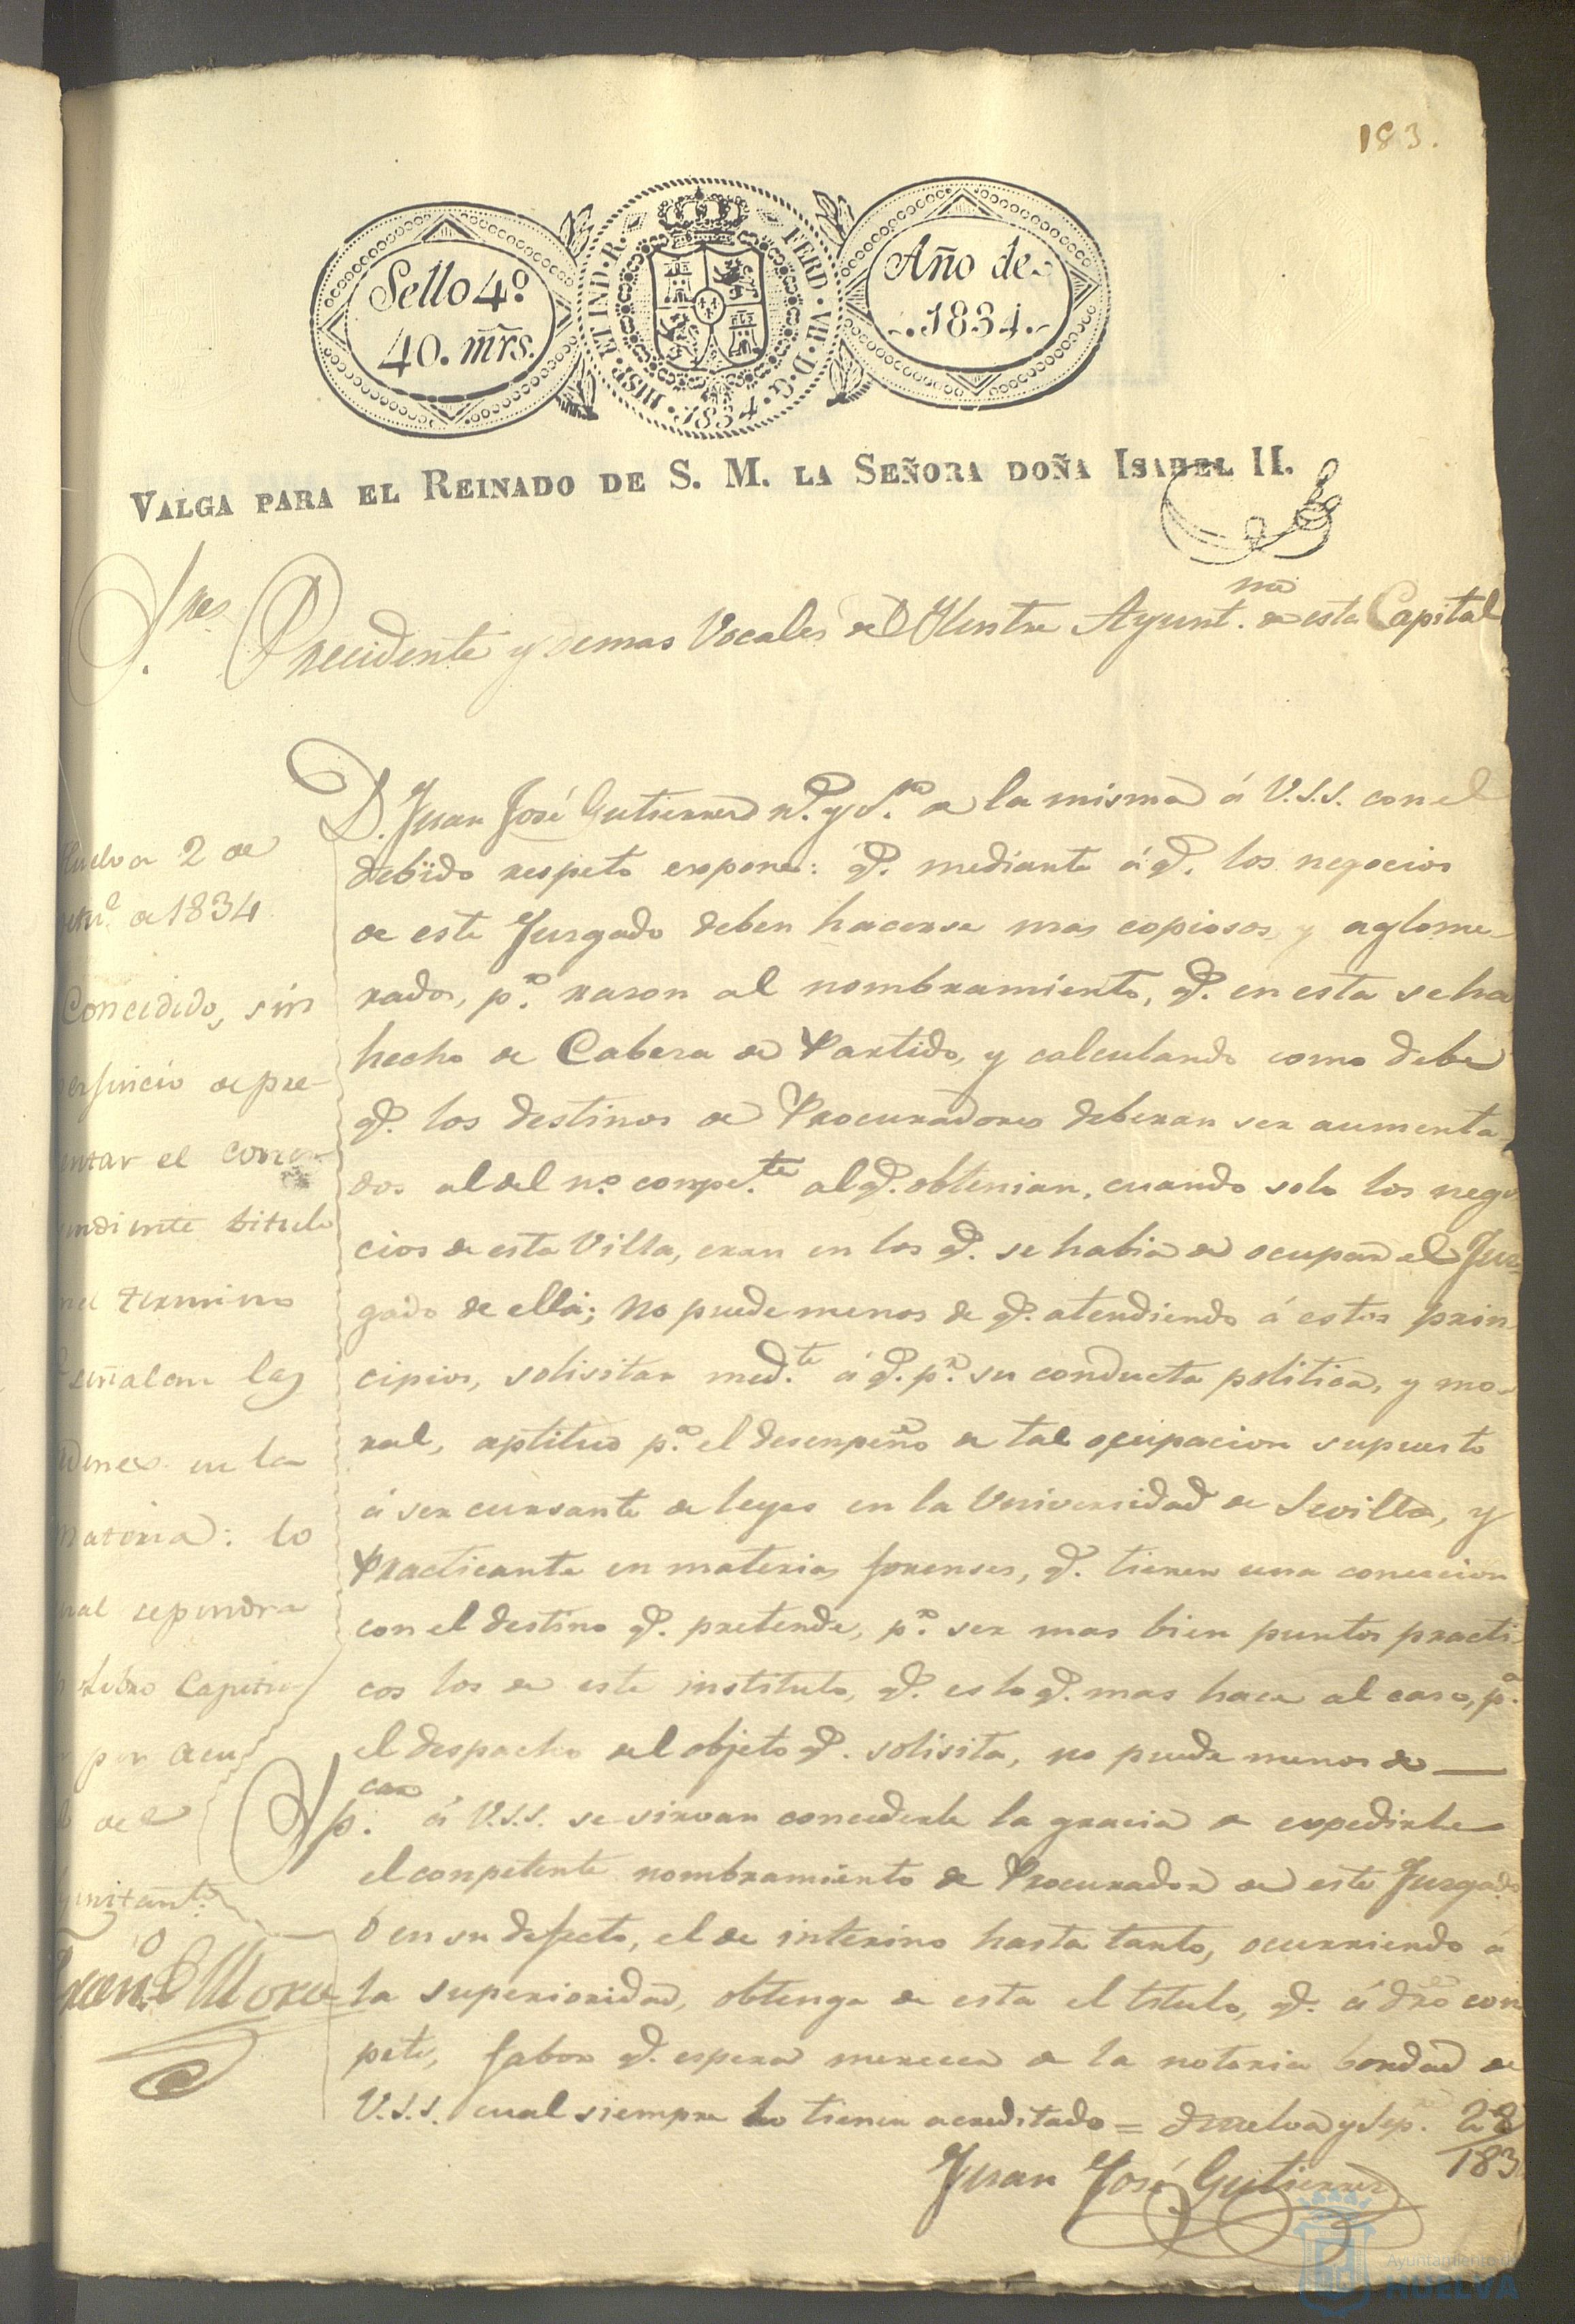 183.
Sello 4º
40. mrs.
HISP. ET IND. R. FERD. VII. D. G. 1834.
Año de
1834.
VALGA PARA EL REINADO DE S. M. LA SEÑORA DOÑA ISABEL II.
S.res Precidente y demas Vocales del Ylustre Ayunt.mto de esta Capital
D. Juan José Gutierrez n.l y v.no de la misma á V.S.S. con el
debido respeto expone: q.e mediante á q.e los negocios
de este Jurgado deben hacerse mas copiosos, y aglome-
rados, p.r rason al nombramiento, q.e en esta se ha
hecho de Cabesa de Partido, y calculando como debe
q.e los destinos de Procuradores deberan ser aumenta-
dos al del nº conpe.te al q.e obtenian, cuando solo los nego
cios de esta Villa, eran en los q.e se habia de ocupar el Jus-
gado de ella; no puede menos de q.e atendiendo á estos prin
cipios, solisitar med.te á q.e p.r su conducta politica, y mo-
ral, aptitud p.a el desenpeño de tal ocupacion supuesto
á ser cursante de leyes en la Universidad de Sevilla, y
Practicante en materias forenses, q.e tienen una coneccion
con el destino q.e pretende, p.r ser mas bien puntos practi
cos los de este instituto, q.e es lo q.e mas hace al caso, p.a
el despacho del objeto q.e solisita, no puede menos de
Sup.car á V.S.S. se sirvan concederle la gracia de expedirle
el conpetente nombramiento de Procurador de este Jurgado
ó en su defecto, el de interino hasta tanto, ocurriendo á
la superioridad, obtenga de esta el titulo, q.e á dro con
pete, fabor q.e espera merecer de la notoria bondad de
V.S.S. cual siempre lo tienen acreditado = Huelva y Sep.e 28
183
Juan José Gutierrez
Huelva 2 de
de 1834
Concedido, sin
perjuicio de pre-
entar el corres-
ondiente titulo
en el termino
señalan las
rdenes en la
materia: lo
ual se pondra
Libro Capitu-
por acu
del
yuntam.to
Mora
Ayuntamiento de
HUELVA